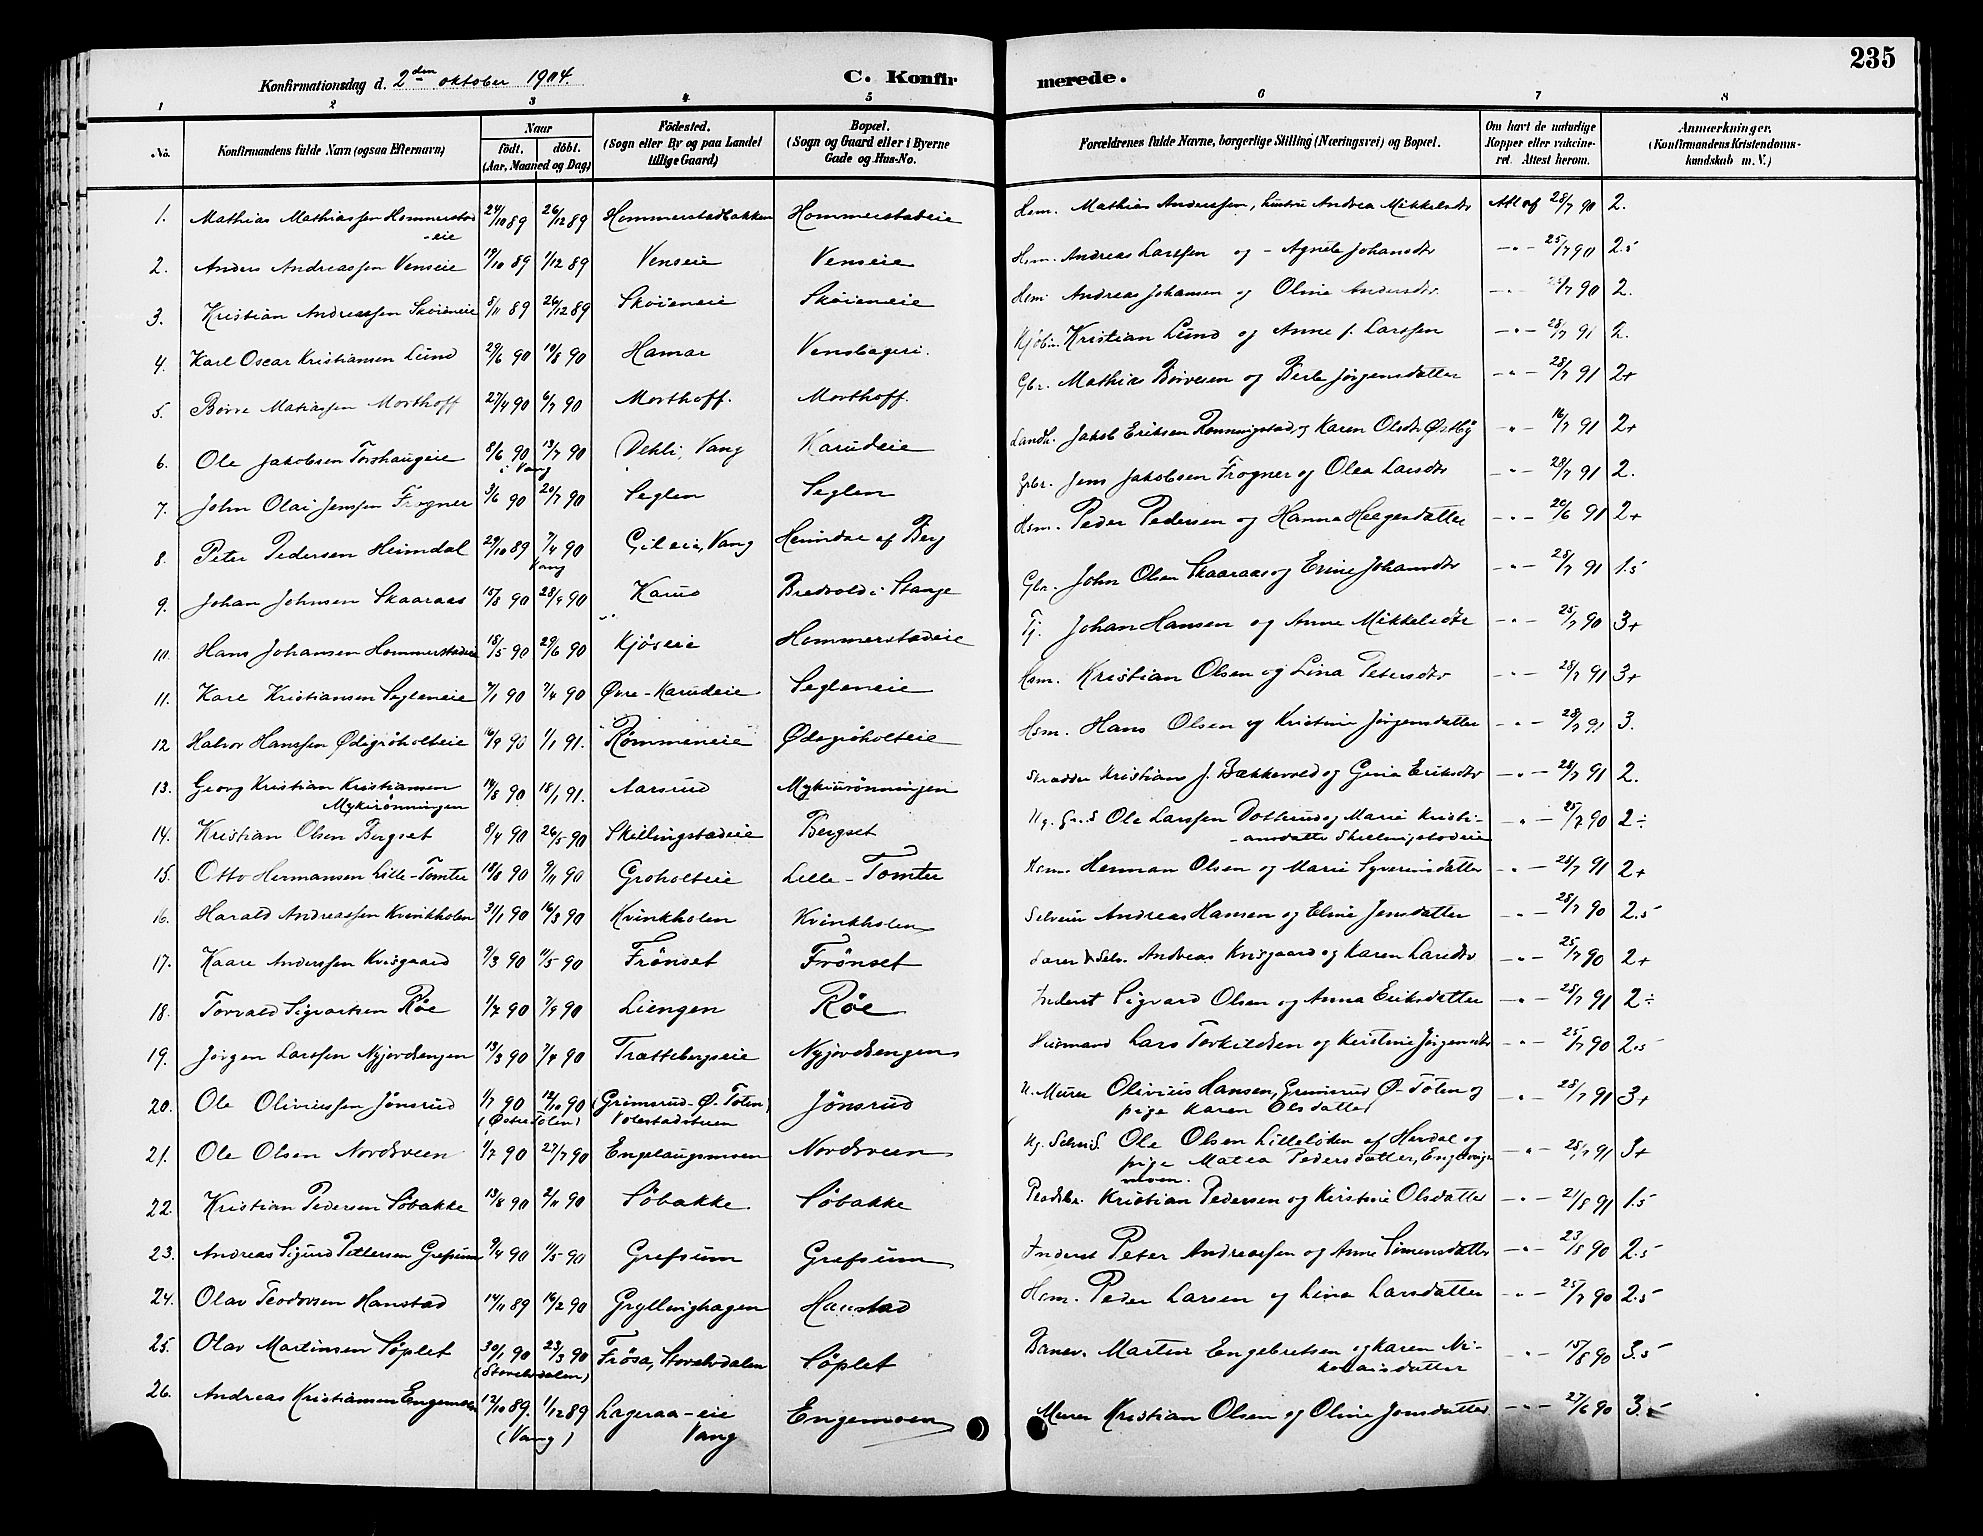 235
Konfirmationsdag d. 2den oktober 1904.
C. Konfirmerede.
1 2 3 4 5 6 7 8
No.
Konfirmandens fulde Navn (ogsaa Efternavn)
Naar
födt. döbt.
(Aar, Maaned og Dag)
Födested.
(Sogn eller By og paa Landet
tillige Gaard)
Bopæl.
(Sogn og Gaard eller i Byerne
Gade og Hus-No.
Forældrenes fulde Navne, borgerlige Stilling (Næringsvei) og Bopæl.
Om havt de naturlige
Kopper eller vakcine-
ret. Attest herom.
Anmærkninger.
(Konfirmandens Kristendoms-
kundskab m. V.)
1. Mathias Mathiassen Hommerstad 24/10 89 26/12 89 Hommerstadbakken Hommerstadeie Hsm. Mathias Anderssen, hustru Andrea Mikkelsdtr Att af 28/7 90 2.
-eie
2. Anders Andreassen Venseie 19/10 89 1/12 89 Venseie Venseie Hsm. Andreas Larssen og - Agnete Johansdtr -"- 25/7 90 2.5
3. Kristian Andreassen Skoieneie 5/11 89 26/12 89 Skoieneie Skoieneie Hsm. Andreas Johansen og Oline Andersdtr. -"- 25/7 90 2.
4. Karl Oscar Kristiansen Lund 29/6 90 10/8 90 Hamar Vensbageri. Kristian Lund og Anne f. Larssen -"- 28/7 91 2.
5. Börre Matiassen Morthoff 27/4 90 6/7 90 Morthoff. Morthoff. Gbr. Mathias Börresen og Berte Jörgensdatter -"- 28/7 91 2+
6. Ole Jakobsen Torshaugeie 8/6 90 13/7 90 Dehli, Vang Karudeie Landh. Jakob Eriksen Ronningstad og Karen Olsdtr Østby -"- 16/7 91 2+
i Vang
7. John Olai Jenssen Frogner 3/6 90 20/7 90 Seglen Seglen Gbr. Jens Jakobsen Frogner og Olea Larsdtr -"- 28/7 91 2.
8. Peter Pedersen Heimdal 29/10 89 7/4 90 Gileie, Vang Heimdal af Berg Hsm. Peder Pedersen og Hanna Helgesdatter -"- 20/6 91 2+
Vang
9. Johan Johnsen Skaaraas 15/8 90 28/9 90 Karud Bredvold i Stange Gbr. John Olsen Skaaraas og Eline Johansdtr -"- 28/7 91 1.5
10. Hans Johansen Hommerstadeie 18/5 90 29/6 90 Kjöseie Hommerstadeie Tj. Johan Hansen og Anne Mikkelsdtr -"- 25/7 90 3+
11. Karl Kristiansen Segleneie 7/1 90 7/4 90 Øvre-Karudeie Segleneie Hsm. Kristian Olsen og Lina Petersdtr -"- 28/7 91 3+
12 Halvor Hanssen Ødegröholteie 16/9 90 1/1 91. Römmeneie Ødegröholteie Hsm. Hans Olsen og Kristine Jörgensdatter -"- 28/7 91 3.
13. Georg Kristian Kristiansen 14/8 90 18/1 91. Aarsrud Mykeurönningen Skrædder Kristians J. Bækkevold og Gina Eriksdtr -"- 28/7 91 2.
Mykirönningen
14. Kristian Olsen Bergset 8/4 90 26/5 90 Skillingstadeie Bergset Ole Larssen Dotterud og Marie Kristi- -"- 25/7 90 2÷
-ansdatter Skillingstadeie
15. Otto Hermansen Lille-Tomter 18/8 90 9/11 90 Groholteie Lille-Tomter Hsm. Herman Olsen og Marie Syverinsdatter -"- 28/7 91 2+
16. Harald Andreassen Kvinkholen 31/1 90 16/3 90 Kvinkholen Kvinkholen Selveier Andreas Hansen og Eline Jensdatter -"- 28/7 90 2.5
17. Kaare Anderssen Kvisgaard 9/3 90 11/5 90 Frönset Frönset Andreas Kvisgaard og Karen Larsdtr -"- 25/7 90 2+
18. Torvald Sigvartsen Röe 1/7 90 7/9 90 Liengen Röe Inderst Sigvard Olsen og Anna Eriksdatter -"- 28/7 91 2÷
19. Jörgen Larssen Nyjordsengen 13/3 90 7/4 90 Trættebergseie Nyjordsengen Husmand Lars Torkildsen og Kerstine Jörgensdtr -"- 25/7 90 2.5
20. Ole Oliviussen Jönsrud 1/7 90 12/10 90 (Grimsrud-Ø. Toten) Jönsrud U. Murer Olivius Hansen, Grimsrud Ø-Toten og -"- 28/7 91 3+
(Østre Toten) Volestadstuen pige Karen Olsdatter
21. Ole Olsen Nordsveen 1/7 90 27/7 90 Engelaugsmoen Nordsveen Ole Olsen Lilleløken af Herdal og -"- 28/7 91 3+
pige Matea Pedersdatter, Engelaugs-
moen.
22. Kristian Pedersen Söbakke 13/8 90 2/11 90 Söbakke. Söbakke Kristian Pedersen og Kerstine Olsdatter -"- 21/8 91 1.5
23. Andreas Sigurd Pettersen Grefsum 9/4 90 11/5 90 Grefsum Grefsum Inderst Peter Andreassen og Anne Simensdatter -"- 23/8 90 2.5
24. Olav Teodorsen Hanstad 14/11 89 16/2 90 Gryllinghagen Hanstad Hsm. Peder Larsen og Lina Larsdatter -"- 25/7 90 2.5
25. Olav Martinsen Söplet 30/1 90 23/3 90 Frösa, Storelvdalen Söplet Banev. Martin Engebretsen og Karen Ni- -"- 15/8 90 3.5
(Storelvdalen) kolaisdatter
26. Andreas Kristiansen Engemoen 12/10 89. 1/12 89 Lageraa-eie Engemoen Murer Kristian Olsen og Oline Jonsdatter. -"- 27/6 90 3.5
(Vang) Vang